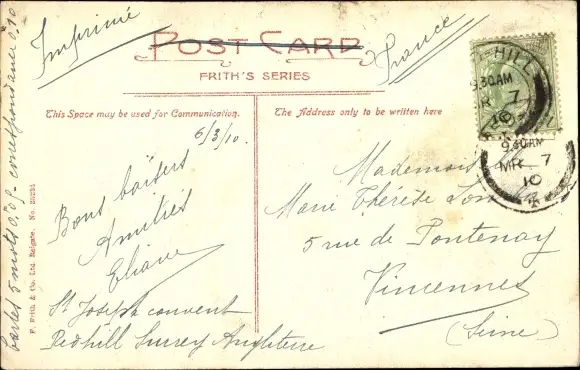 Imprimé
POST CARD
France
FRITH'S SERIES
This Space may be used for Communication.
The Address only to be written here
6/3/10.
Bons baisers
Amitiés
Eliane
St Joseph convent
Redhill Surrey Angleterre
Mademoiselle
Marie Thérèse
5 rue de Fontenay
Vincennes
(Seine)
HILL
9.30AM
MR 7
10
9.30AM
MR 7
10
cartes 5 mots 0,05 - correspondance 0,10
F. Frith & Co. Ltd. Reigate. No.